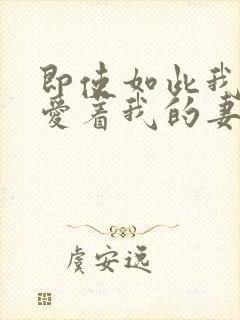 即使如此我
爱着我的妻
虞安远